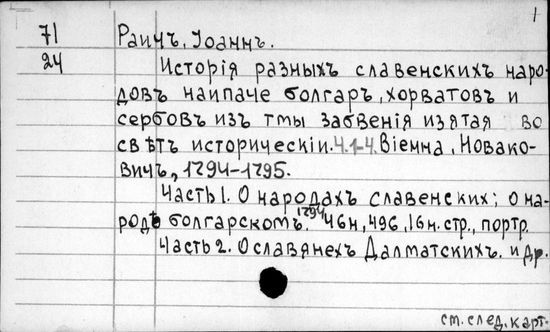 1
71 Раичъ, Іоаннъ.
24 Исторія разныхъ славенскихъ наро-
довъ наипаче болгаръ, хорватовъ и
сербовъ изъ тмы забвенія изятая во
свѣтъ историческіи. Ч.1-4. Віенна, Новако-
вичъ, 1794-1795.
Часть 1. О народахъ славенскихъ; О на-
родѣ болгарскомъ. 1794 46н, 496, 16н. стр., портр.
Часть 2. О славянехъ Далматскихъ. и др.
см. след. карт.